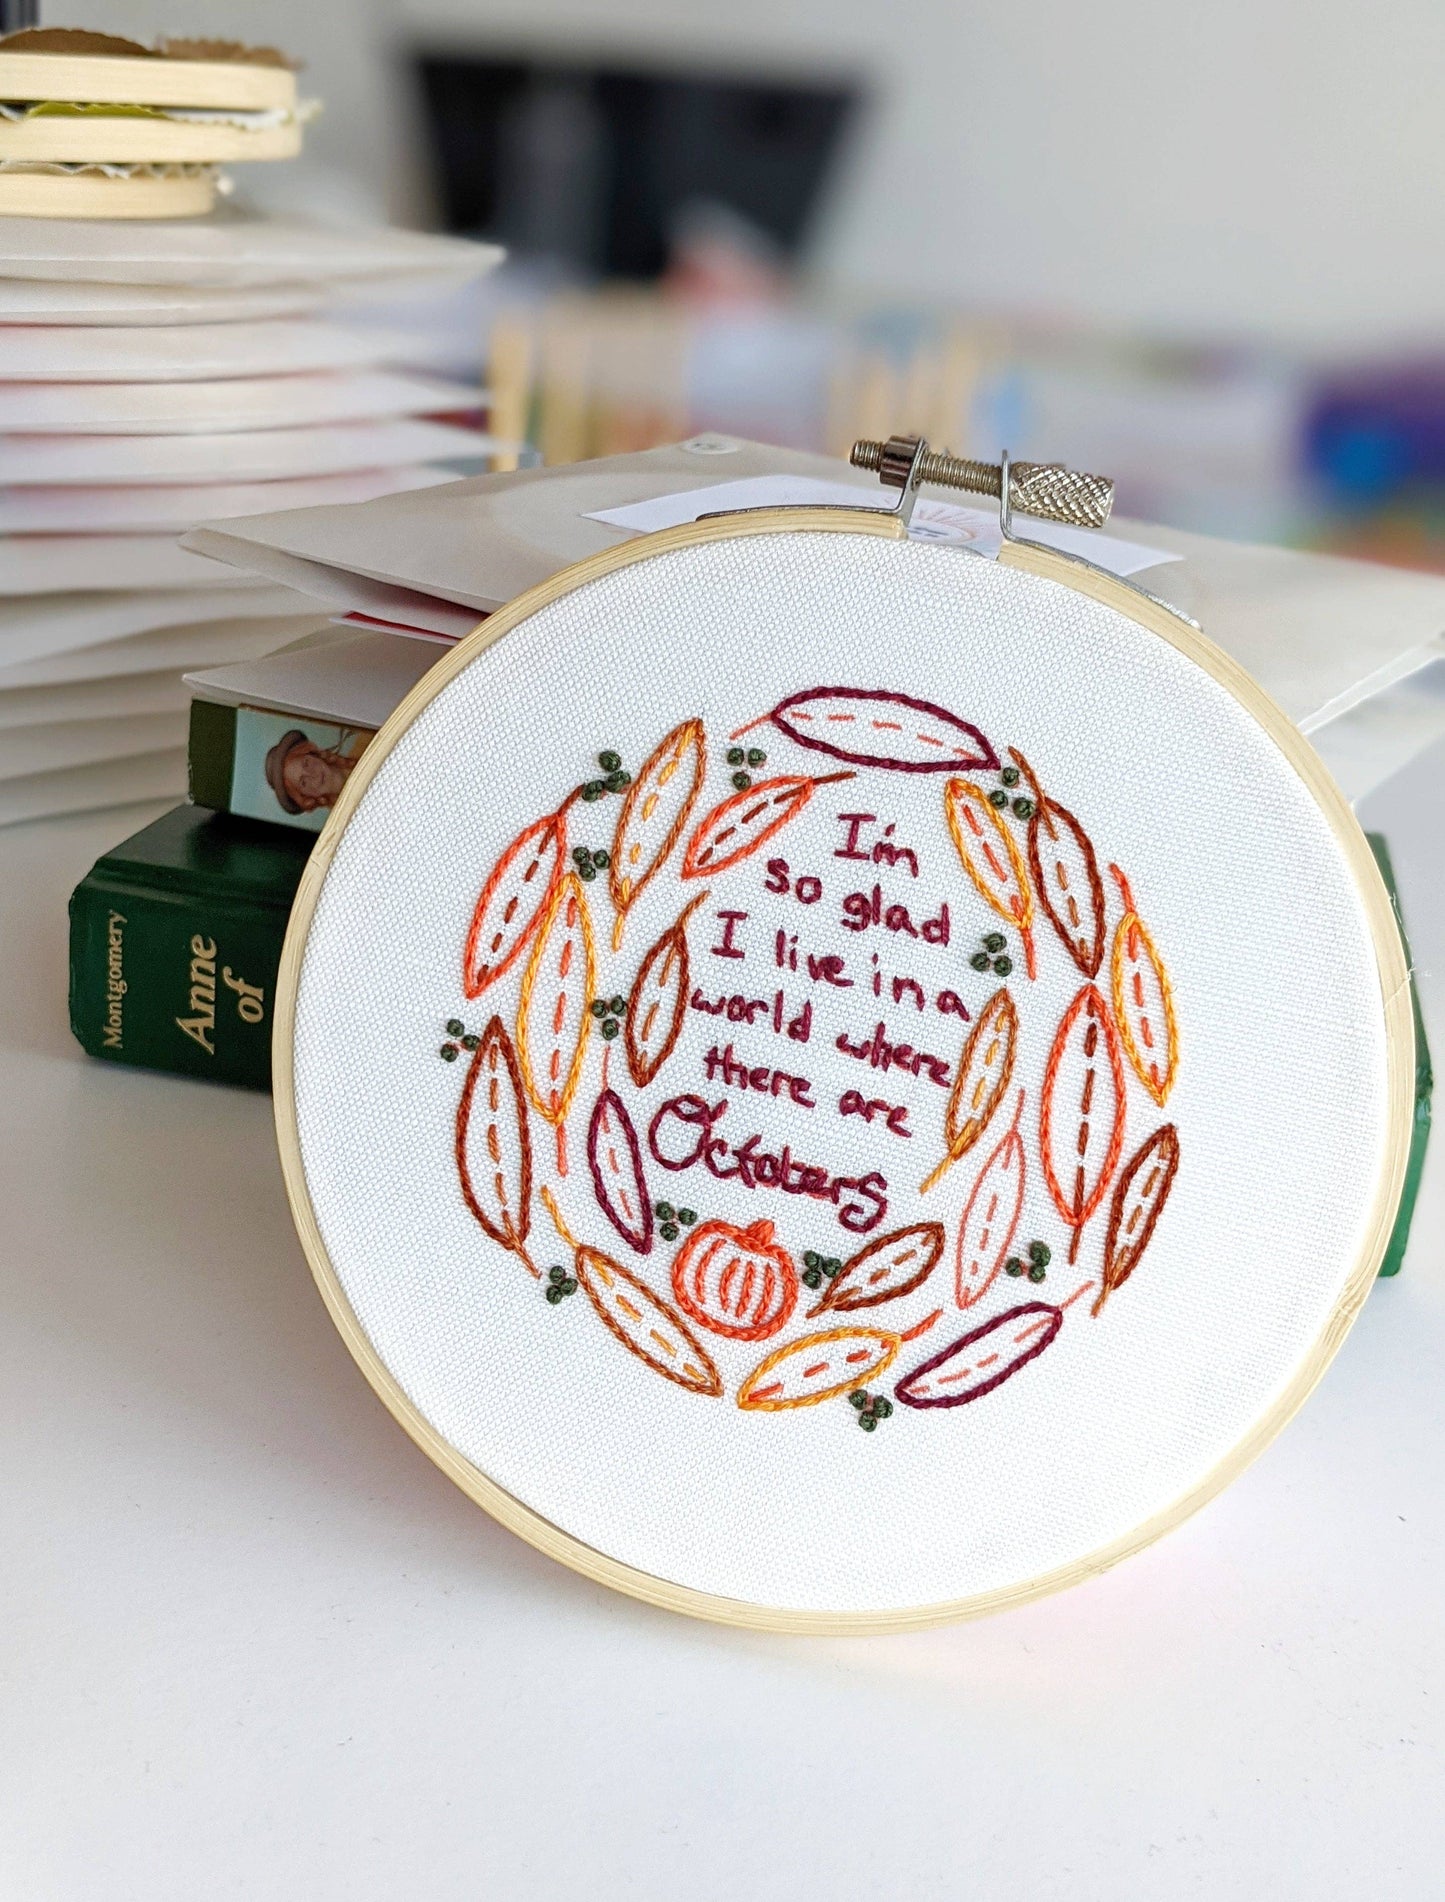 I'm
so glad
I live in a
world where
there are
Octobers
Montgomery
Anne
of